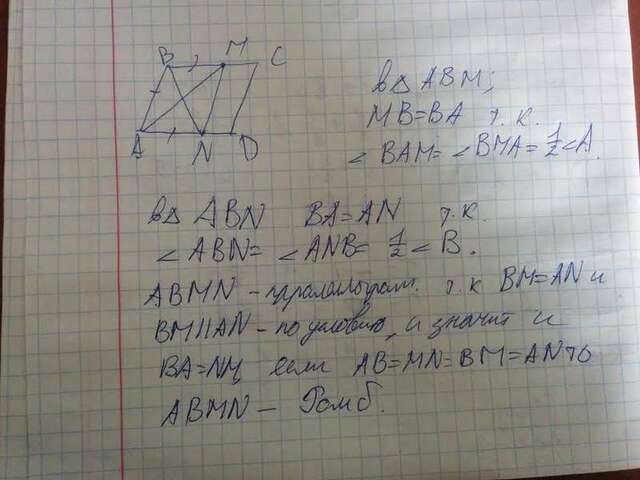 B M C
A N D
в △ ABM;
MB=BA т.к.
∠ BAM= ∠ BMA = 1/2 ∠A.
в △ ABN BA=AN т.к
∠ ABN= ∠ ANB= 1/2 ∠ B.
ABMN - т.к BM=AN и
BM||AN - по условию, и значит и
BA=NM, если AB=MN=BM=AN то
ABMN - Ромб.